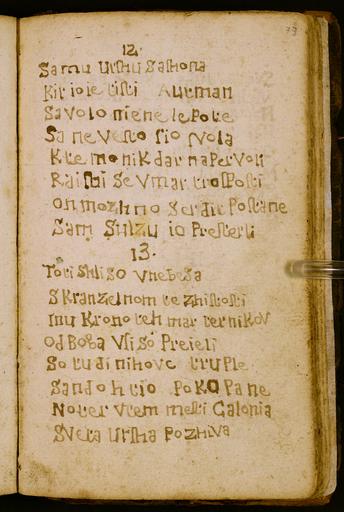 79
12.
Samu Urshu Sashona
Kir io ie tisti Aurman
Sa volo niene lepote
Sa nevesto sio vola
K te mo nikdar naper voli
Raishi se vmar tro sposti
on mozhno Serdit Postane
Sam Sulzu io Presterli
13.
Toti Shli so vnebesa
S Kranzelnom te zhistosti
Inu Krono teh mar ter nikov
od Boga vsi so Preieli
So tudi nihove truple
San do h tio poKOPane
Noter vtem mesti Galonia
Sveta Ursha pozhiva